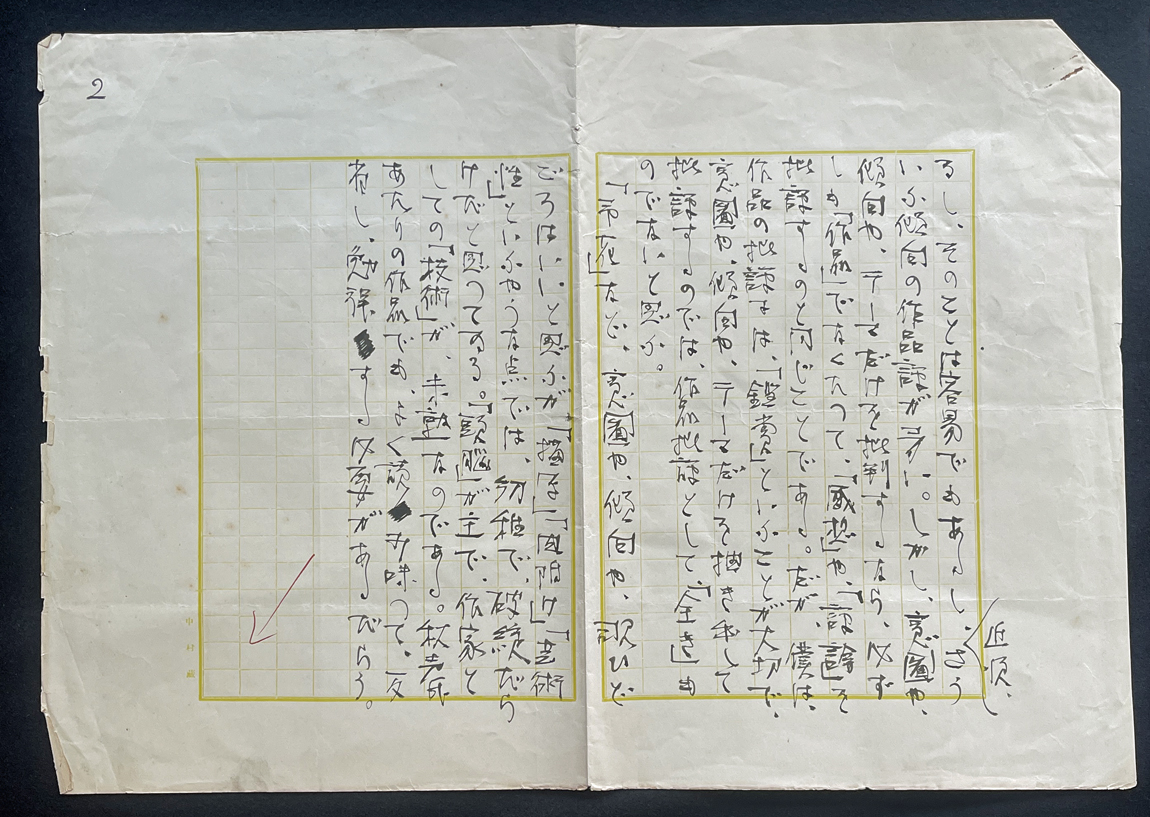 2
近頃、
るし、そのことは容易でもあるし、さう
いふ傾向の作品評が多い。しかし、意圖や、
傾向や、テーマだけを批判するなら、必ず
しも「作品」でなくたつて、「感想」や、「評論」を
批評するのと同じことである。だが、僕は、
作品の批評は、「鑑賞」といふことが大切で、
意圖や、傾向や、テーマだけを抽き出して
批評するのでは、作品批評として、「全き」も
のでないと思ふ。
「 」など、意圖や、傾向や、狙ひど
ころはいいと思ふが、「描写」「肉附け」「芸術
性」といふやうな点では、幼稚で、破綻だら
けだと思つてゐる。「頭脳」が主で、作家と
しての「技術」が、未熟なのである。秋声氏
あたりの作品でも、よく読み味つて、反
省し、勉強する必要があるだらう。